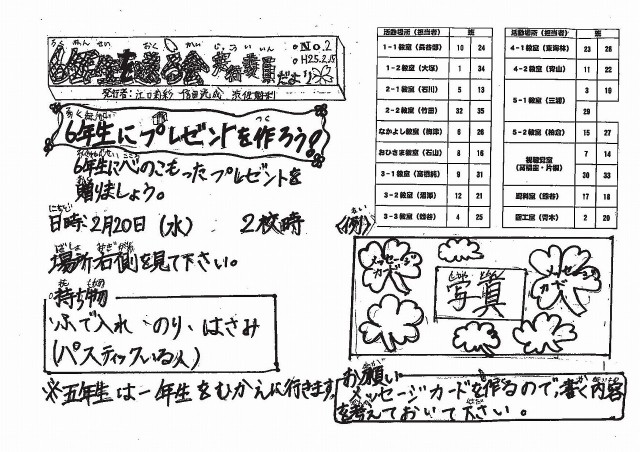 6年生を送る会実行委員だより
No.2
H25.2.15
6年生にプレゼントを作ろう!
6年生に心のこもったプレゼントを
贈りましょう。
日時 2月20日(水) 2校時
場所 右側を見て下さい。
持ち物
ふで入れ のり、はさみ
(パスティックいる人)
※五年生は一年生をむかえに行きます。
活動場所(担当者) 班
1-1教室(長谷部) 10 24
1-2教室(大塚) 1 34
2-1教室(石川) 5 13
2-2教室(竹田) 32 35
なかよし教室(梅津) 6 26
おひさま教室(石山) 8 16
3-1教室(高橋純) 9 31
3-2教室 12 21
3-3教室 4 25
活動場所(担当者) 班
4-1教室(東海林) 23 28
4-2教室(青山) 11 22
5-1教室(三浦) 3 19
29
5-2教室(柏倉) 15 27
視聴覚室 7 14
30 33
理科室 17 18
図工室(青木) 2 20
《例》
メッセージ
カード
写真
メッセージ
カード
お願い
メッセージカードを作るので、書く内容
を考えておいて下さい。